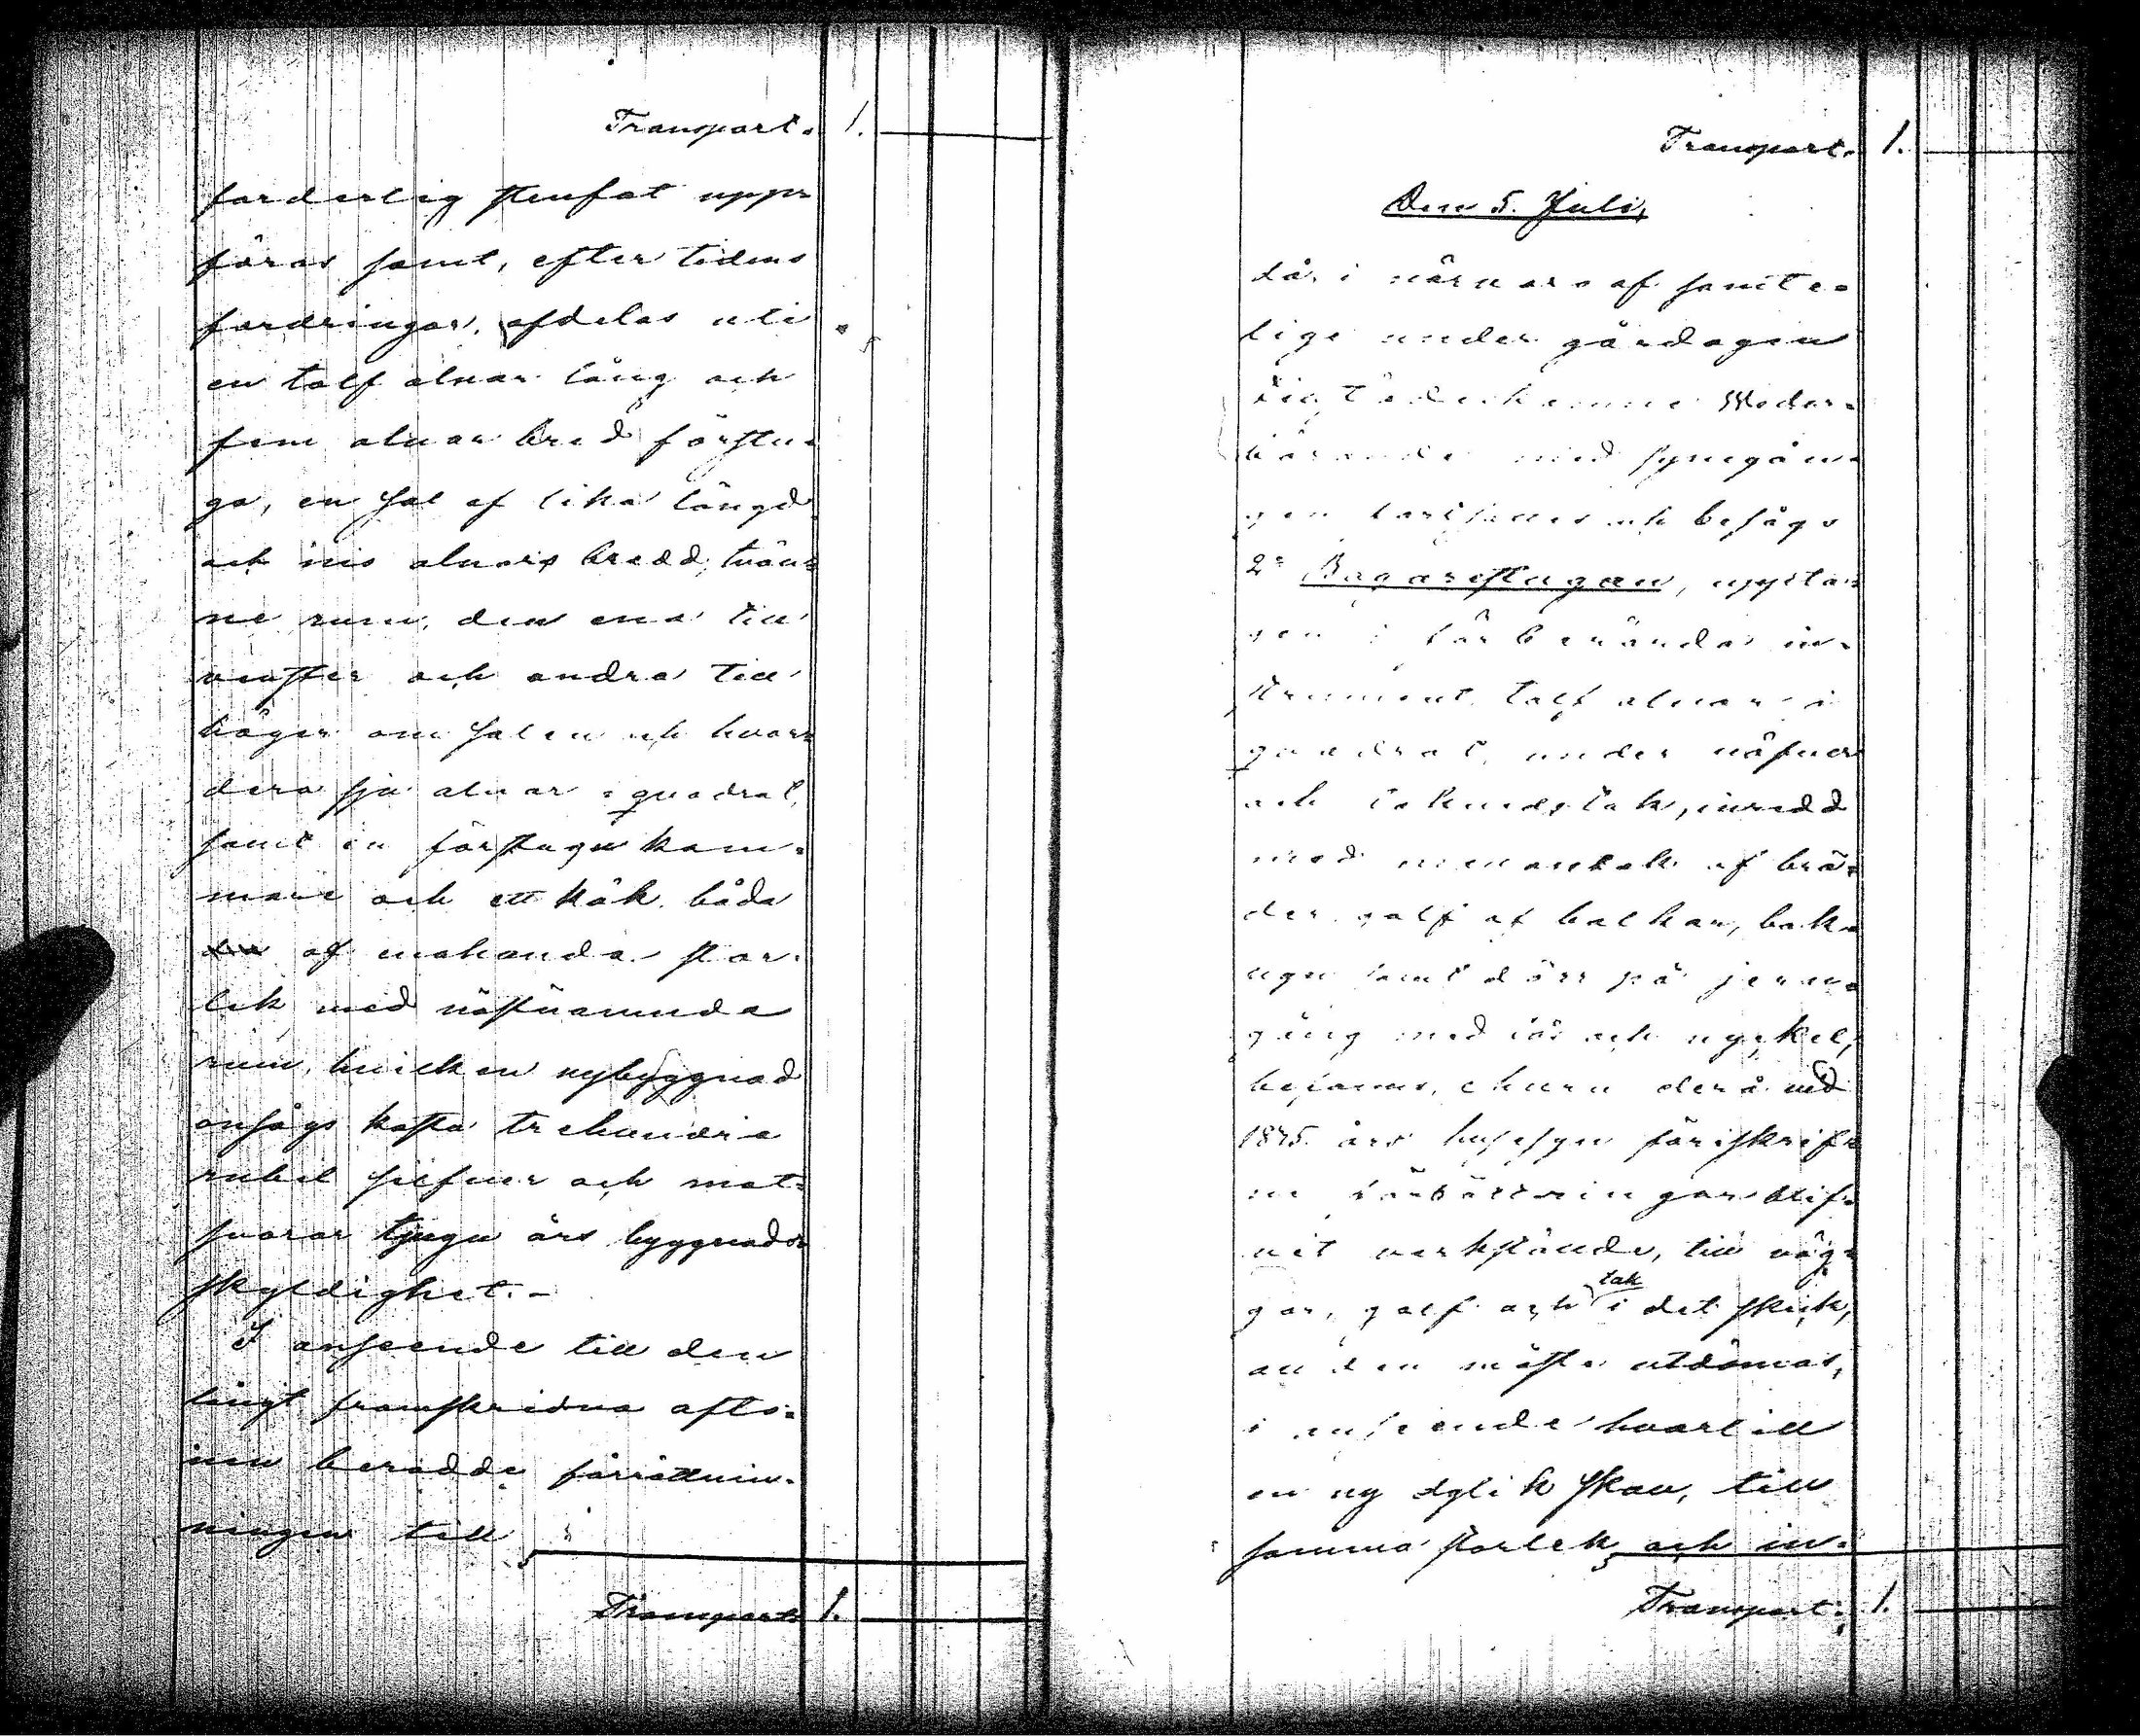 Transport. 1.
forderlig stenfot upp=
föras samt, efter tidens
fordringar, afdelas uti
en tolf alnar lång och
fem alnar bred förstu=
ga, en sal af lika längd
och nio alnars bredd, tvän=
ne rum, den ena till
venster och andra till
höger om salen och hvar=
dera sju alnar i quadrat,
samt en förstugu kam=
mare och ett kök, båda
af enahanda stor=
lek med nästnämnda
rum, hvilken nybyggnad
ansågs kosta trehundra
rubel silfver och mot=
svarar tjugu års byggnads
skyldighet.-
I anseende till den
långt framskridna afto=
nen berodde förrättnin=
ningen till
Transport 1.
Transport. 1.
Den 5. Juli,
då, i närvaro af samte=
lige under gårdagen
tillstädeskomne Veder=
börande med synegån=
gen fortsattes och besågs
2:o Bagarestugan, uppta=
gen i förberörda in=
strument tolf alnar i
quadrat, under näfver
och takvedstak, inredd
med innantak af brä=
der, golf af balkar, bak=
ugn samt dörr på jern=
gång med lås och nyckel,
befanns, ehuru derå vid
1875 års husesyn föriskrif=
ne förbättringar blif=
vit verkstälde, till väg=
gar, golf och tak i det skick,
att den måste utdömas,
i anseende hvartill
en ny dylik skall, till
samma storlek och in=
Transport. 1.